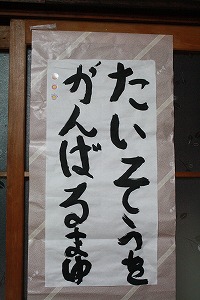 たいそうを
がんばるまゆ